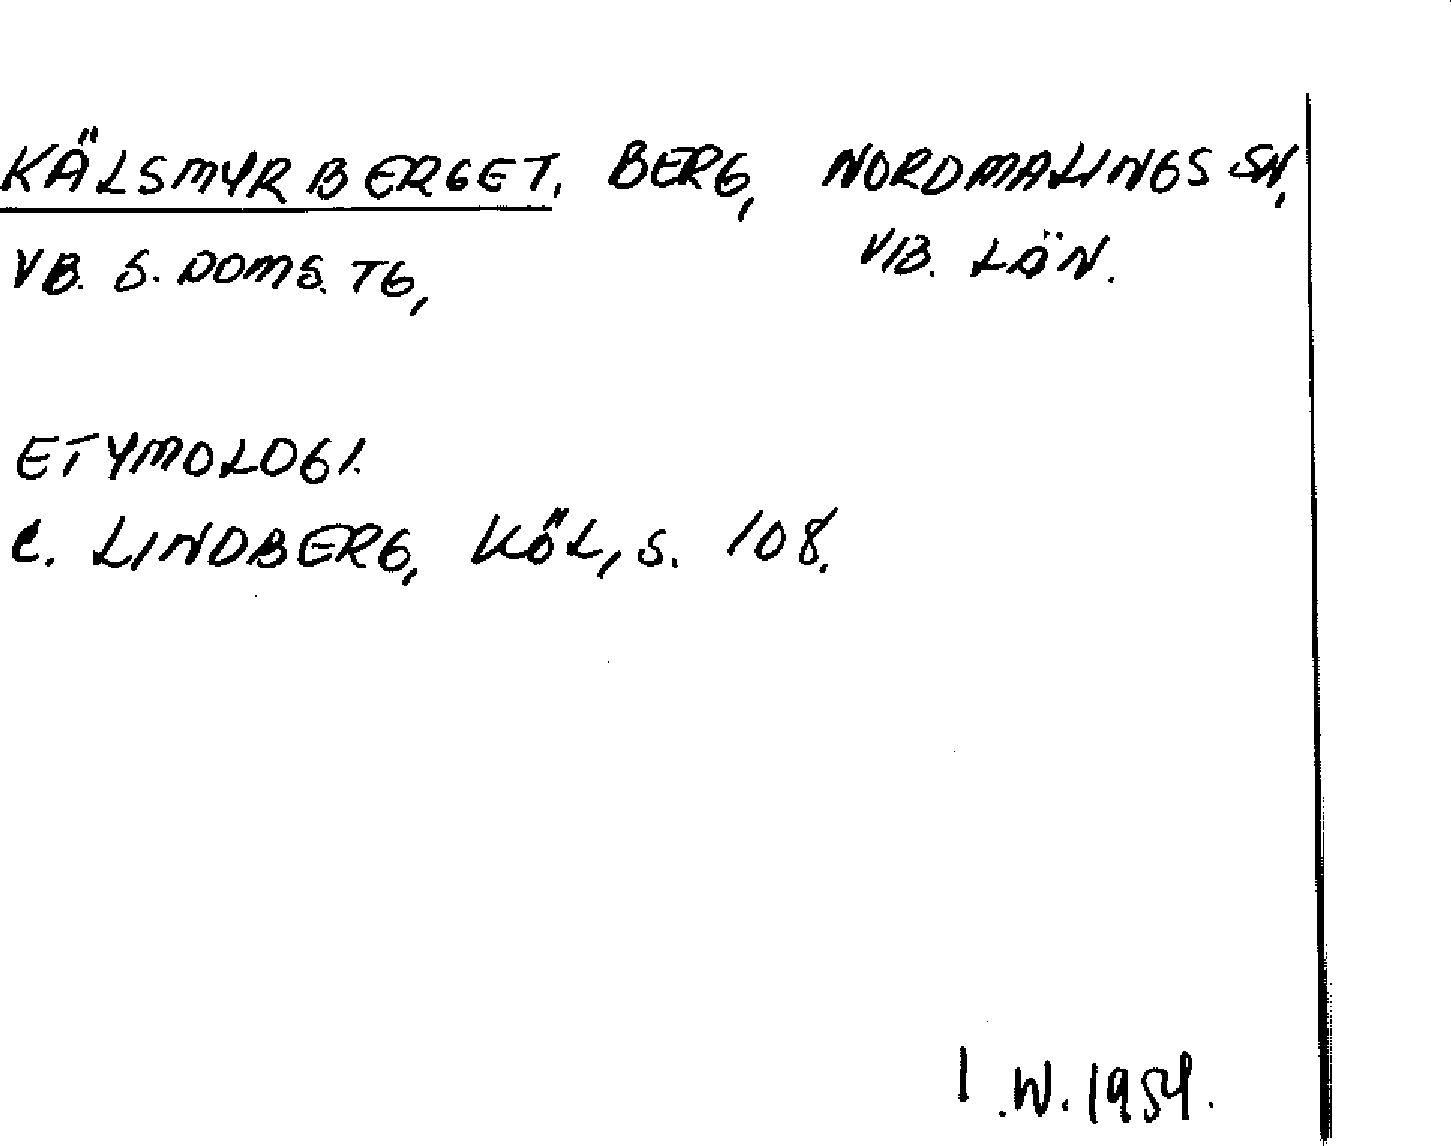 KÄLSMYRBERGET. BERG, NORDMALINGS SN,
VB. S. DOMS. TG, VB. LÄN.
ETYMOLOGI.
C. LINDBERG, KÖL, S. 108.
I.W. 1954.